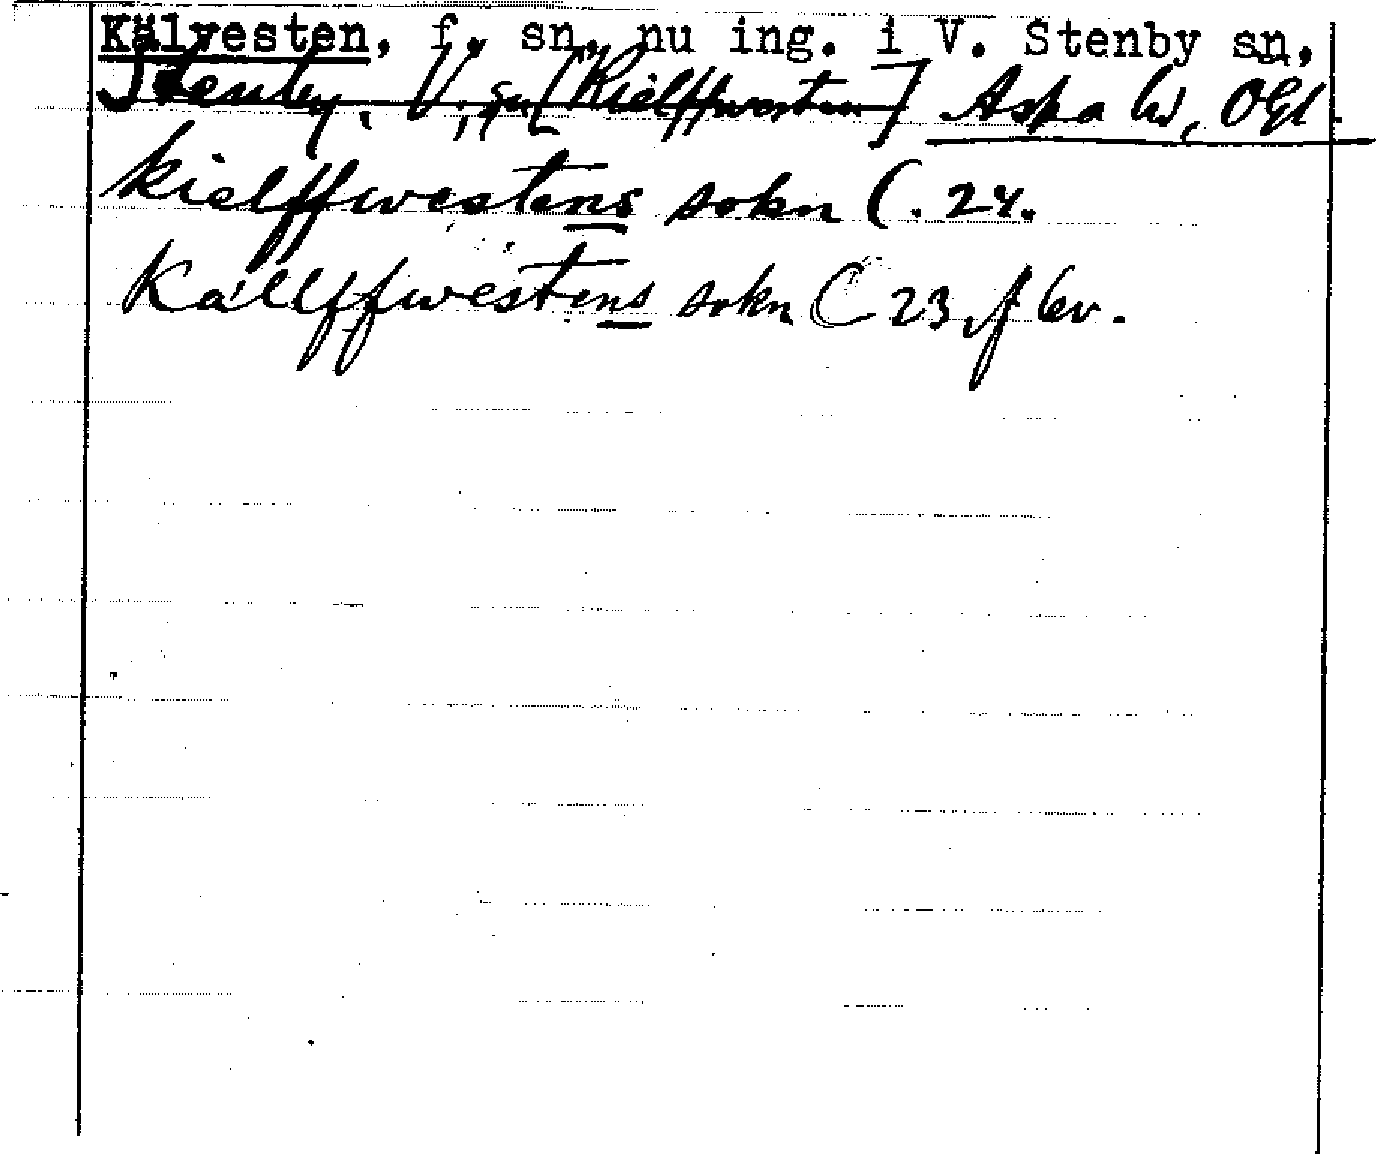 Kälvesten, f. sn, nu ing. i V. Stenby sn,
Stenby, V., sn [Kielffwesten] Aska hd, Ögl.
kielffwestens sokn C. 24.
Kalffwestens sokn C 23 f 6v.